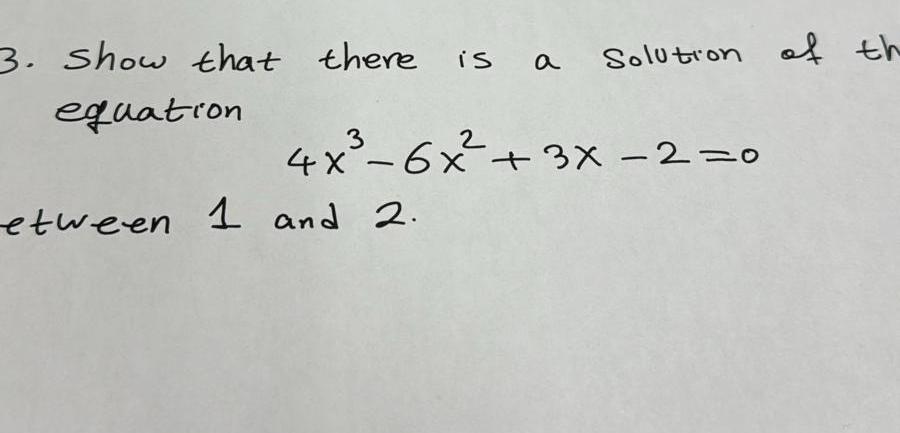 3. Show that there is a solution of th
equation
4x³ - 6x² + 3x - 2 = 0
etween 1 and 2.